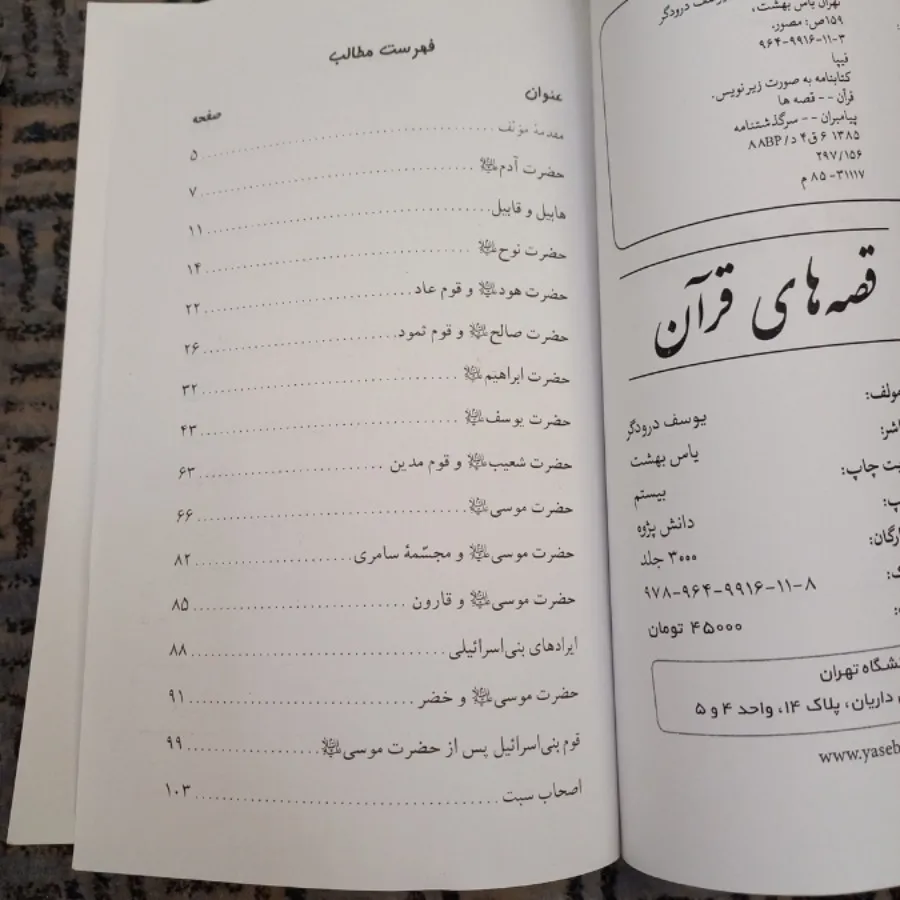 تهران یاس بهشت،
۱۵۹ص: مصور.
۹۶۴-۹۹۱۶-۱۱-۳
فیپا
کتابنامه به صورت زیرنویس.
قرآن -- قصه ها
پیامبران -- سرگذشتنامه
۱۳۸۵ ۶ق۴د/۸۸BP
۲۹۷/۱۵۶
۳۱۱۱۷-۸۵م
قصه‌های قرآن
یوسف درودگر
یاس بهشت
بیستم
دانش پژوه
۳۰۰۰ جلد
۹۷۸-۹۶۴-۹۹۱۶-۱۱-۸
۴۵۰۰۰ تومان
تهران
داریان، پلاک ۱۴، واحد ۴ و ۵
فهرست مطالب
عنوان صفحه
مقدمهٔ مؤلف ۵
حضرت آدم؈ ۷
هابیل و قابیل ۱۱
حضرت نوح؈ ۱۴
حضرت هود؈ و قوم عاد ۲۲
حضرت صالح؈ و قوم ثمود ۲۶
حضرت ابراهیم؈ ۳۲
حضرت یوسف؈ ۴۳
حضرت شعیب؈ و قوم مدین ۶۳
حضرت موسی؈ ۶۶
حضرت موسی؈ و مجسّمهٔ سامری ۸۲
حضرت موسی؈ و قارون ۸۵
ایرادهای بنی‌اسرائیلی ۸۸
حضرت موسی؈ و خضر ۹۱
قوم بنی‌اسرائیل پس از حضرت موسی؈ ۹۹
اصحاب سبت ۱۰۳